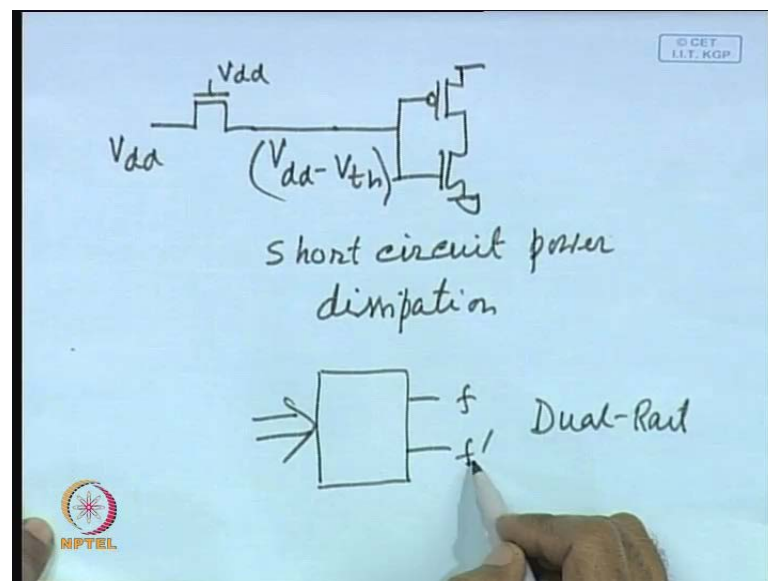 © CET
I.I.T. KGP
Vdd
Vdd
(Vdd - Vth)
short circuit power
dissipation
f
f'
Dual-Rail
NPTEL